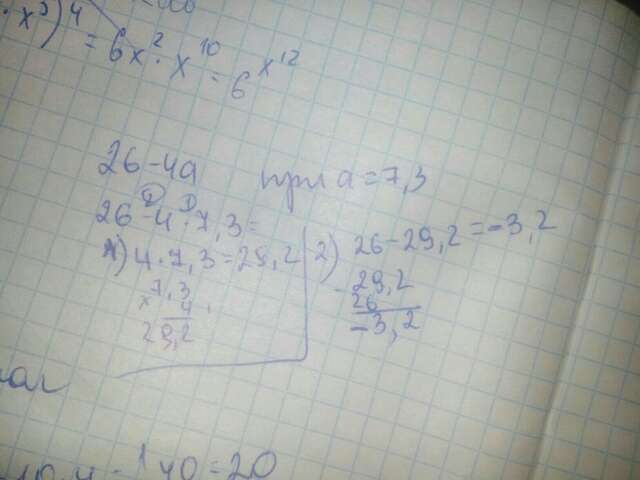 x³) 4
= 6x² · x¹⁰ = 6 x¹²
26-4a при a=7,3
26 - 4 · 7,3 =
1) 4 · 7,3 = 29,2
7,3
× 4
29,2
2) 26 - 29,2 = -3,2
- 29,2
26
-3,2
40 = 20